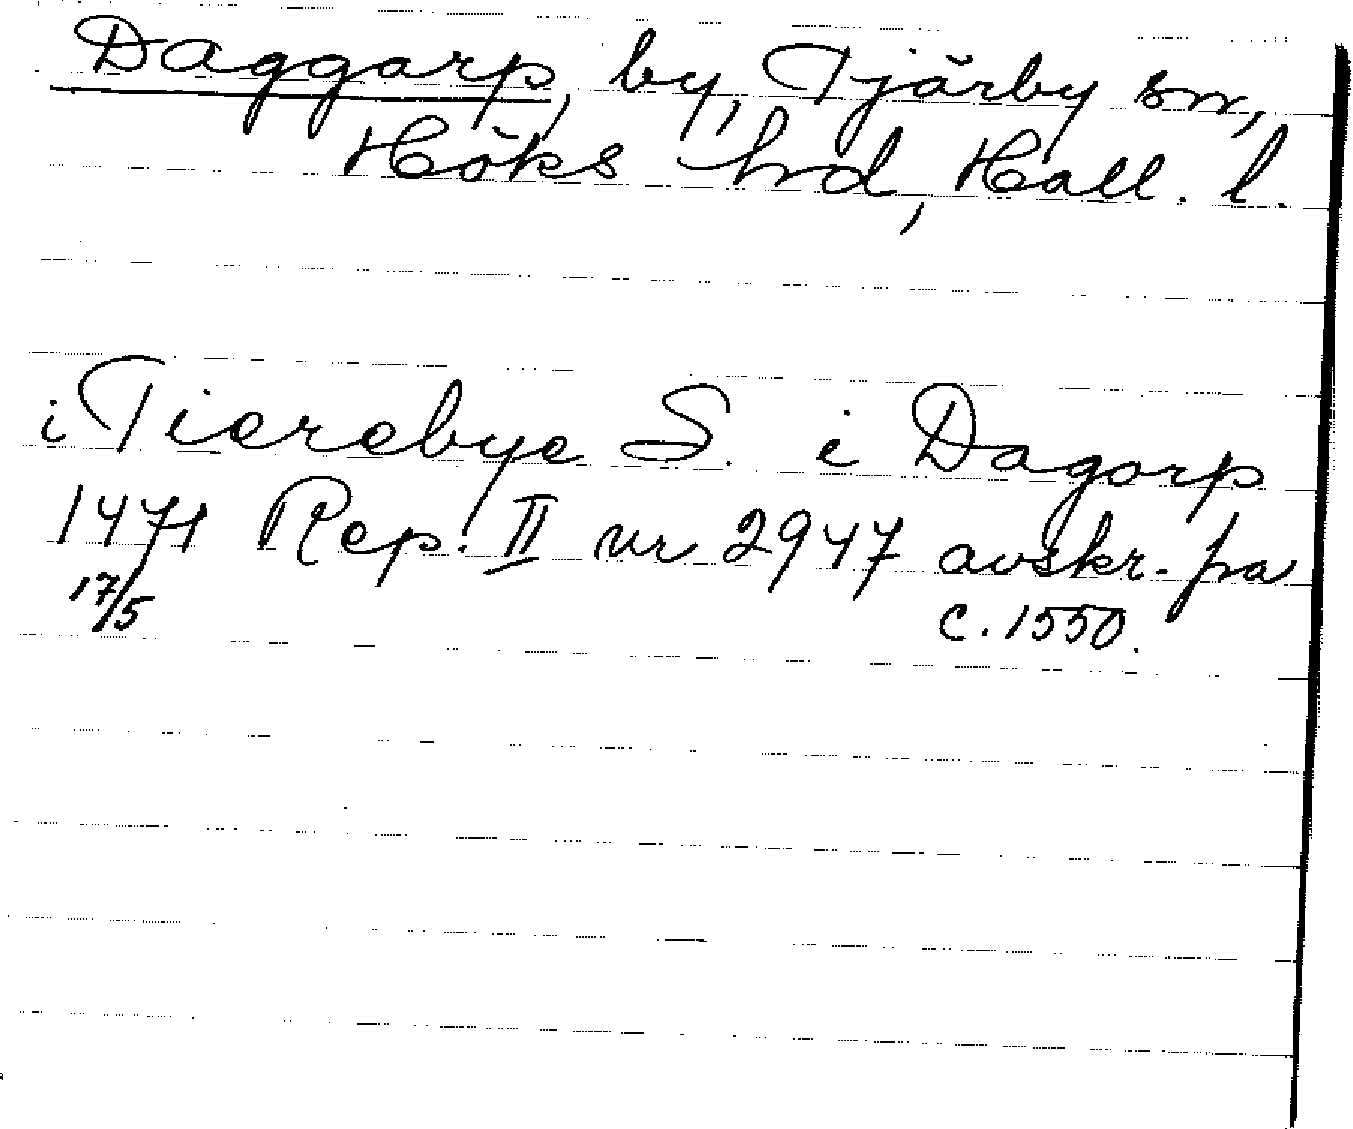 Daggarp, by, Tjärby sn,
Höks hrd, Hall. l.
i Tierebye S. i Dagorp
1471 Rep. II nr 2947 avskr. fra
17/5 c. 1550.